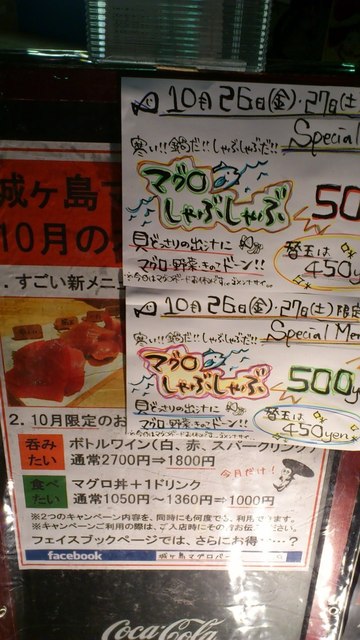 10月26日(金)・27日(土)
Special
寒い!!鍋だ!!しゃぶしゃぶだ!!
マグロ
しゃぶしゃぶ
50
貝どっさりの出汁に
マグロ・野菜・きのこドーン!!
替玉は
450yen
10月26日(金)・27日(土)限定
Special Men
寒い!!鍋だ!!しゃぶしゃぶだ!!
マグロ
しゃぶしゃぶ
500y
貝どっさりの出汁に
マグロ・野菜・きのこドーン!!
替玉は
450yen
城ヶ島マ
10月の
.すごい新メニュ
2. 10月限定のお
呑み
たい
ボトルワイン(白、赤、スパークリング)
通常2700円⇒1800円
今月だけ!
食べ
たい
マグロ丼+1ドリンク
通常1050円~1360円⇒1000円
※2つのキャンペーン内容を、同時にも何度でも、利用できます。
※キャンペーンご利用の際は、ご入店時にそのむねお伝え下さい。
フェイスブックページでは、さらにお得…?
facebook
城ヶ島マグロバ
Coca-Cola